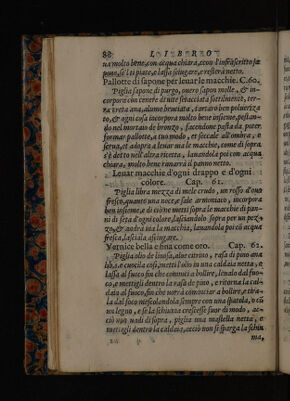 88 LIBRO
ua molto bene, con acqua chiara, e con l'infrascritto sa
pone, se li piace, e lassa asciugare, e restera netto.
Pallotte di sapone per leuar le macchie. C. 60.
Piglia sapone di purgo, ouero sapon molle, & in-
corpora con cenere di uite setacciata sottilmente, ter-
ra creta ana, alume bruciata, tartaro ben poluerizza
to, & ogni cosa incorpora molto bene insieme, pestan-
do nel mortaio de bronzo, facendone pasta da poter
formar pallotte, a tuo modo, et seccale all'ombra, e
serua, et adopra a leuar ma le macchie, come di sopra
s'è detto nell'altra ricetta, lauandola poi con acqua
chiara, molto bene ramarrà il panno netto.
Leuar macchie d'ogni drappo e d'ogni
colore. Cap. 61.
Piglia libra mezza di mele crudo, un rosso d'ouo
fresco, quanto una noce, e sale armoniaco, incorpora
ben insieme, e di ciò ne metti sopra le macchie di pan-
ni di seta d'ogni colore, lasciandolo sopra per un pez-
zo, & andrà uia la macchia, lauandola poi cõ acqua
fresca, lascia la asciugare.
Vernice bella e fina come oro. Cap. 62.
Piglia olio de linosa, aloe citrino, rasa di pino ana
lib. e cuocila così, metti l'olio in una caldaia netta, e
lassa al fuoco sin che cominci a bollire, leualo dal fuo-
co, e mettigli dentro la rasa de pino, e ritorna la cal-
daia al fuoco, sin che uorà cominciar a bollire, e tira-
la dal foco mescolandola sempre con una spatola, o cũ
un legno, e se la schiuma crescesse fuor di modo, ac-
ciò non uadi di sopra, piglia una mastella netta, e
mettigli dentro la caldaia, acciò non si sparga la schiu
ma,